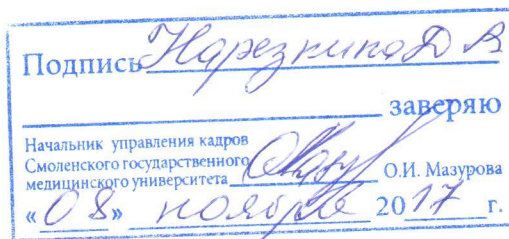 Подпись Нарезкина Д В
заверяю
Начальник управления кадров
Смоленского государственного
медицинского университета О.И. Мазурова
«08» ноября 2017 г.